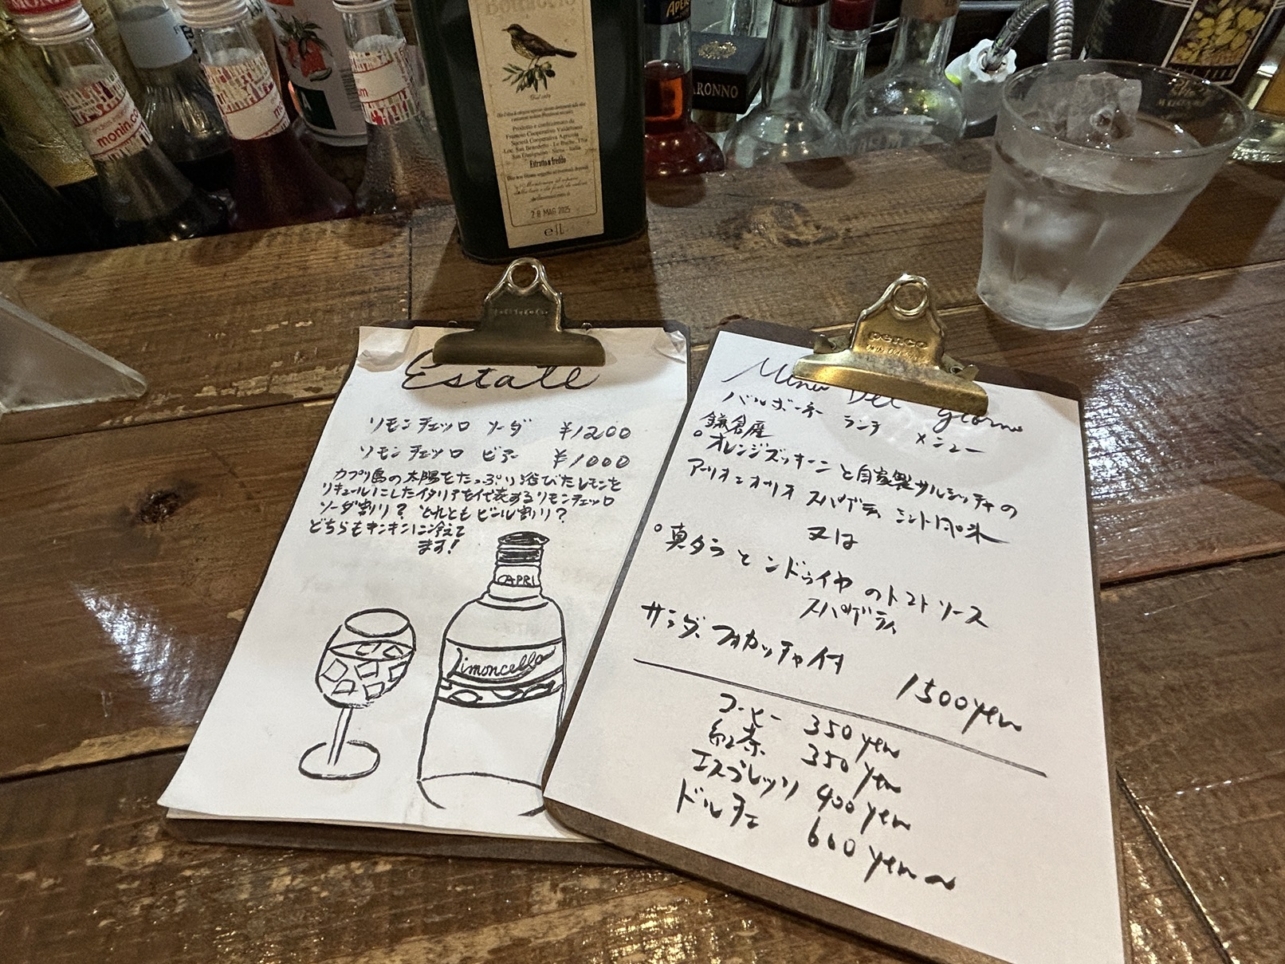 monin.com
monin
APE
RONNO
Estratto a freddo
28 MAG 2025
e1L
Estate
リモンチェッロ ソーダ ¥1200
リモンチェッロ ビアー ¥1000
カプリ島の太陽をたっぷり浴びたレモンを
リキュールにしたイタリアを代表するリモンチェッロ
ソーダ割り? それともビール割り?
どちらもキンキンに冷えて
ます!
CAPRI
Limoncello
Menu Del giorno
バルボンネ ランチ メニュー
鎌倉産
○オレンジズッキーニと自家製サルシッチャの
アーリオ・エ・オリオ スパゲティ ミント風味
又は
○真ダラとンドゥイヤのトマトソース
スパゲティ
サラダ、フォカッチャ付
1500yen
コーヒー 350yen
紅茶 350yen
エスプレッソ 400yen
ドルチェ 600yen〜